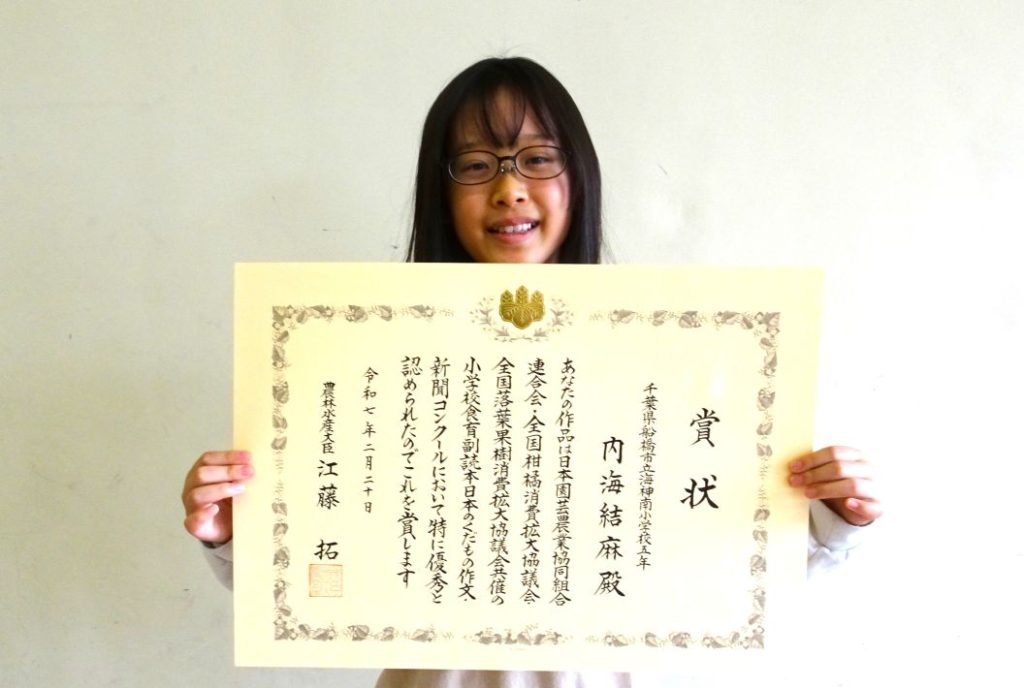 賞状
千葉県船橋市立海神南小学校五年
内海結麻殿
あなたの作品は日本園芸農業協同組合
連合会・全国柑橘消費拡大協議会・
全国落葉果樹消費拡大協議会共催の
小学校食育副読本日本のくだもの作文・
新聞コンクールにおいて特に優秀と
認められたのでこれを賞します
令和七年二月二十日
農林水産大臣 江藤 拓